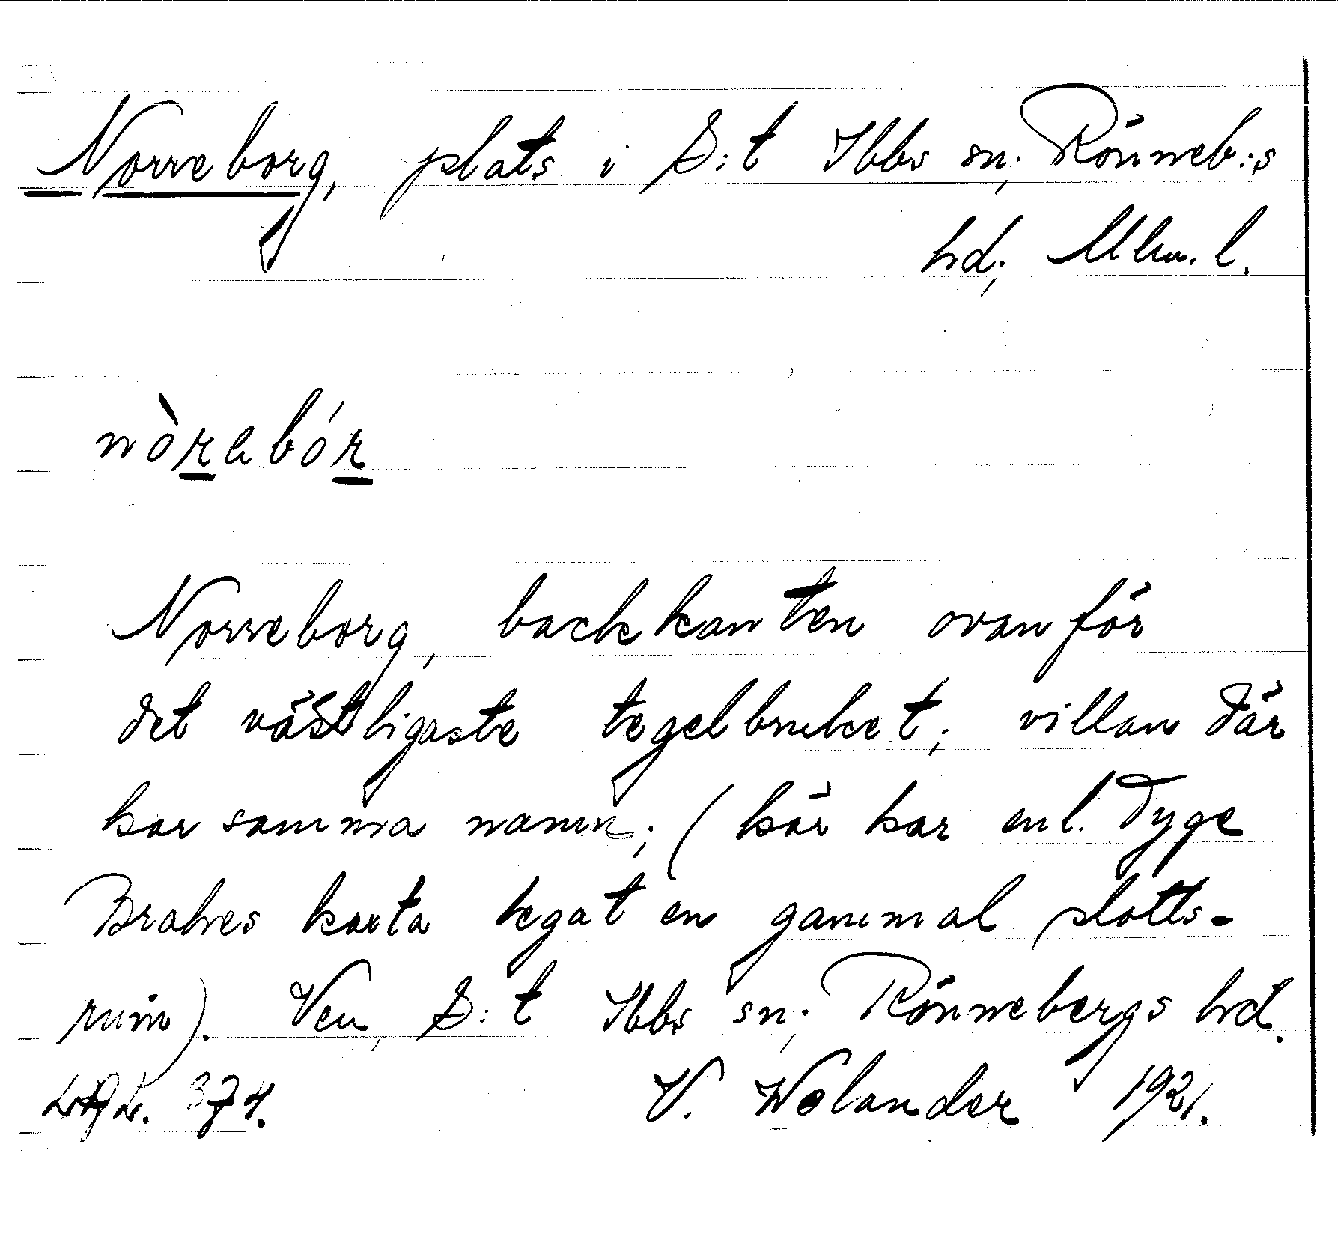 Norreborg, plats i S:t Ibbs sn; Rönneb:s
hd; Mlm. l.
nòrabór
Norreborg, backkanten ovanför
det västligaste tegelbruket; villan där
har samma namn; (här har enl. Tyge
Brahes karta legat en gammal slotts-
ruin). Ven, S:t Ibbs sn; Rönnebergs hd.
374. V. Welander 1921.